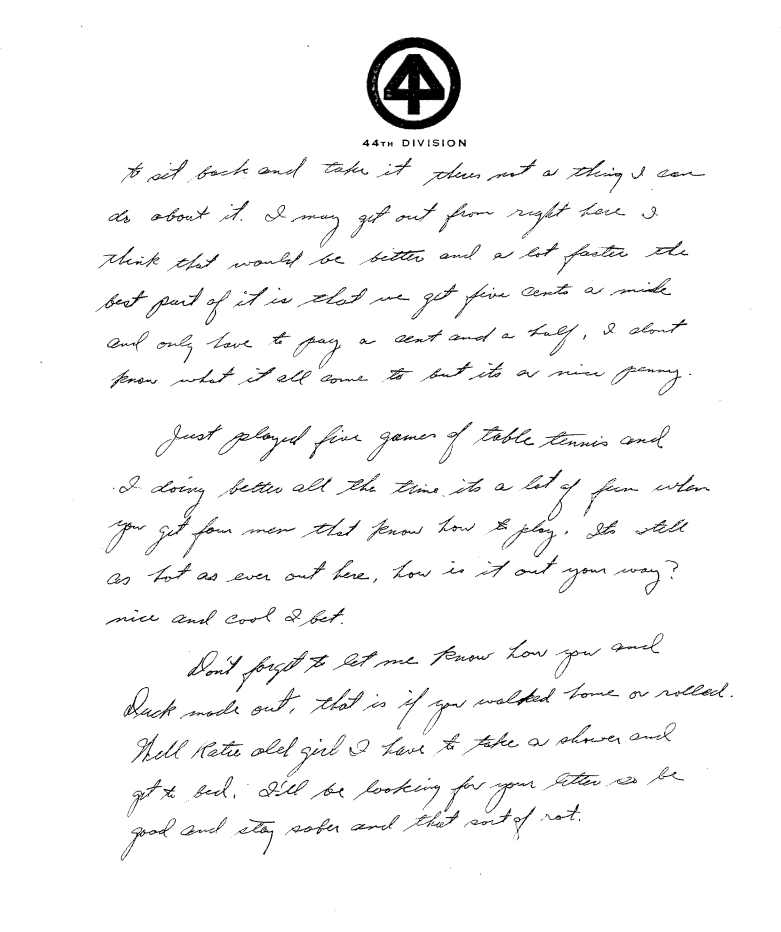 44TH DIVISION
to sit back and take it theres not a thing I can
do about it. I may get out from right here I
think that would be better and a lot faster the
best part of it is that we get five cents a mile
and only have to pay a cent and a half, I dont
know what it all come to but its a nice penny.
Just played five games of table tennis and
I doing better all the time its a lot of fun when
you get four men that know how to play. Its still
as hot as ever out here, how is it out your way?
nice and cool I bet.
Don't forget to let me know how you and
made out, that is if you walked home or rolled.
Well Katie old girl I have to take a shower and
get to bed. I'll be looking for your letter so be
good and stay sober and that sort of rot.